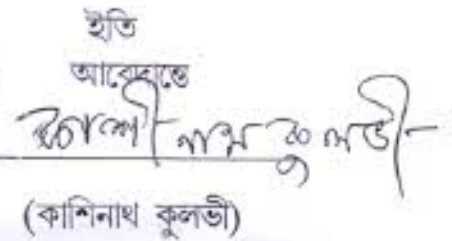 ইতি
আবেদান্তে
কাশীনাথ কুলভী
(কাশিনাথ কুলভী)